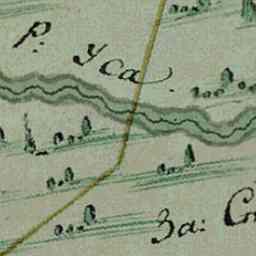 Р: Уса
За: Сн